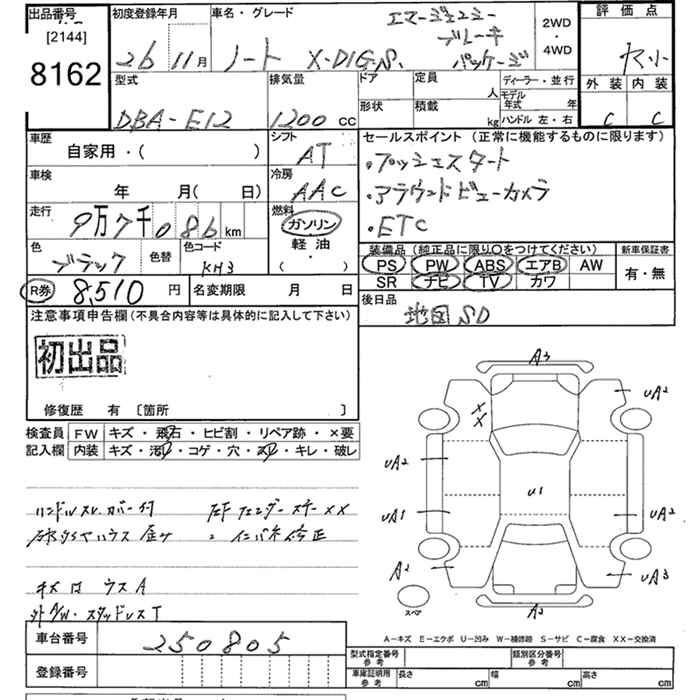 出品番号
[2144]
8162
初度登録年月
26年11月
車名・グレード
エマージェンシー
ブレーキ
パッケージ
ノート X-DIG.S.
2WD
・
4WD
評価点
外装 内装
C C
型式
DBA-E12
排気量
1200 cc
ドア
定員
人
ディーラー・並行
形状
積載
kg
モデル年式 年
ハンドル 左・右
車歴
自家用・( )
シフト
AT
車検
年 月( 日)
冷房
AAC
走行
9万7千086 km
燃料
ガソリン
軽油
( )
色
ブラック
色替
色コード
KH3
R券 8,510 円
名変期限 月 日
セールスポイント(正常に機能するものに限ります)
・プッシュスタート
・アラウンドビューカメラ
・ETC
装備品(純正品に限り○をつけてください)
新車保証書
PS PW ABS エアB AW
SR ナビ TV カワ
有・無
後日品
地図SD
注意事項申告欄(不具合内容等は具体的に記入して下さい)
初出品
修復歴 有 〔箇所 〕
検査員 FW キズ・飛石・ヒビ割・リペア跡・×要
記入欄 内装 キズ・汚れ・コゲ・穴・スレ・キレ・破レ
ハンドルスレ、カバー付
左F フェンダー ステー ××
インパネ修正
キズは ウスA
外A/W・スタッドレスT
A3
××
UA2
UA2
U1
UA1
UA2
A2
UA3
スペア
A2
A-キズ E-エクボ U-凹み W-補修跡 S-サビ C-腐食 XX-交換済
車台番号 250805
登録番号
型式指定番号
参考
類別区分番号
参考
車庫証明用
参考
長さ cm
幅 cm
高さ cm